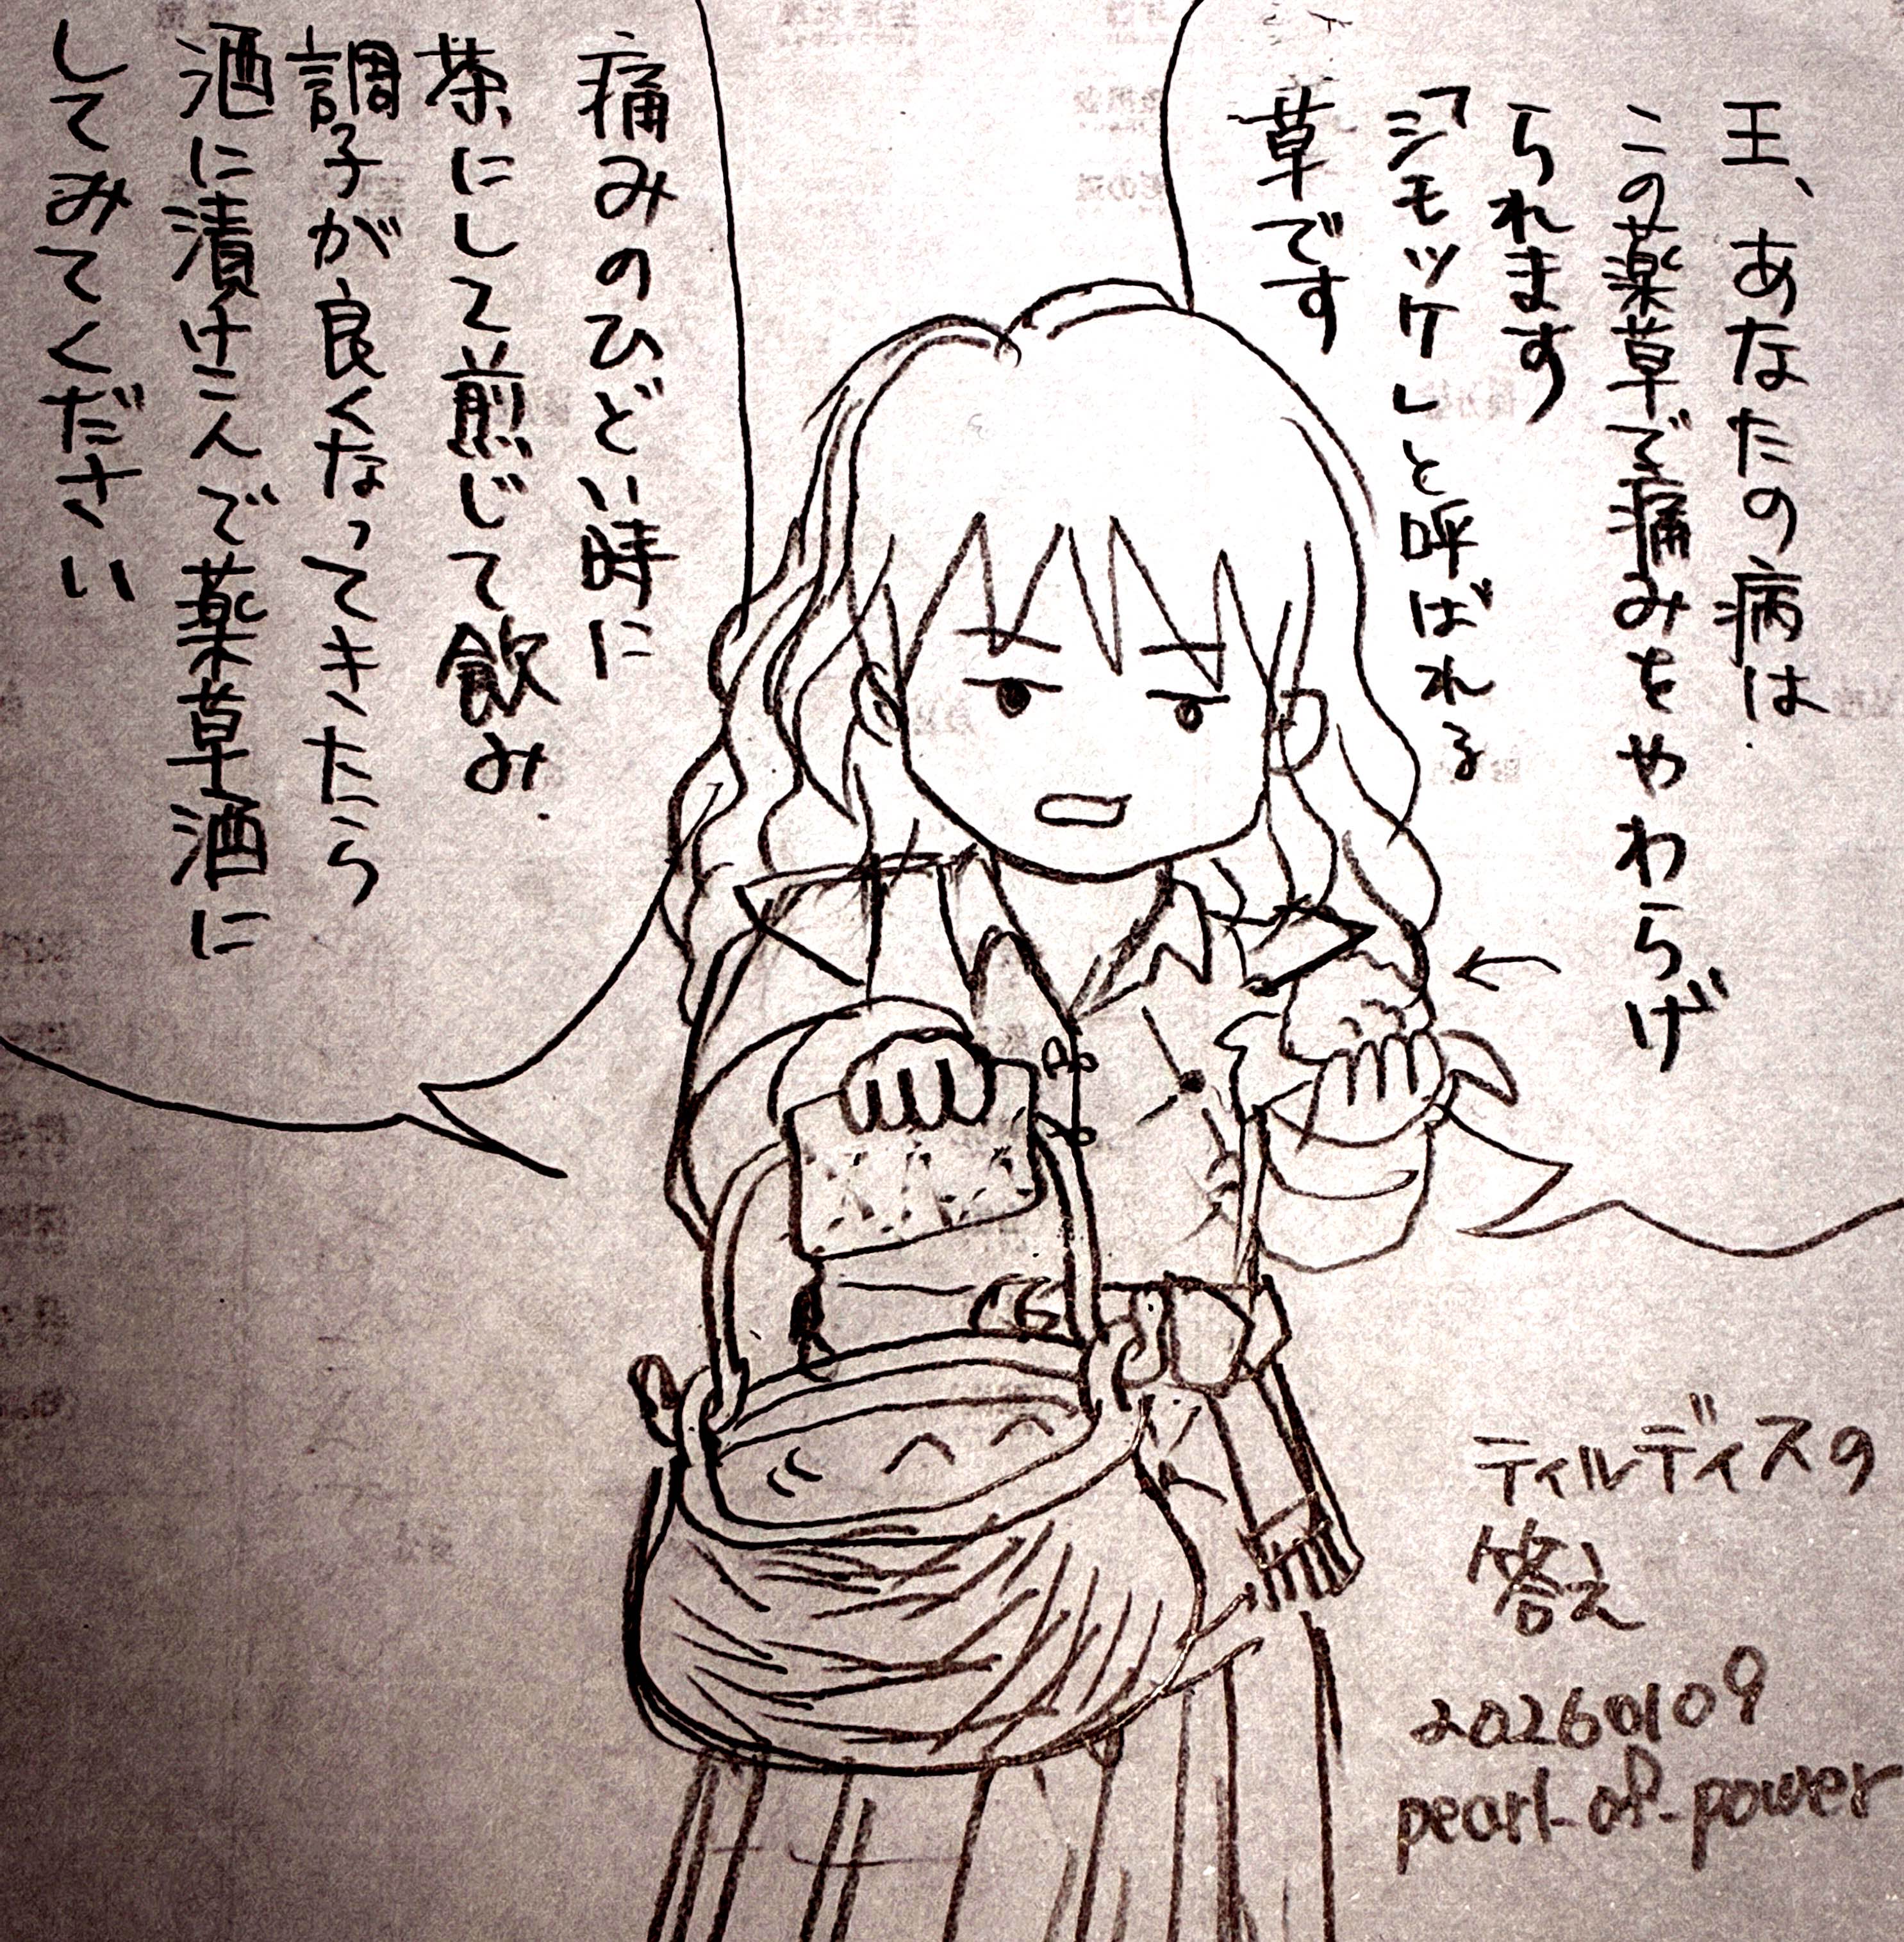 王、あなたの病は
この薬草で痛みをやわらげ
られます
「シモツケ」と呼ばれる
草です
痛みのひどい時に
茶にして煎じて飲み
調子が良くなってきたら
酒に漬け二人で薬草酒に
してみてください
ティルディスの
答え
20260109
pearl-of-power